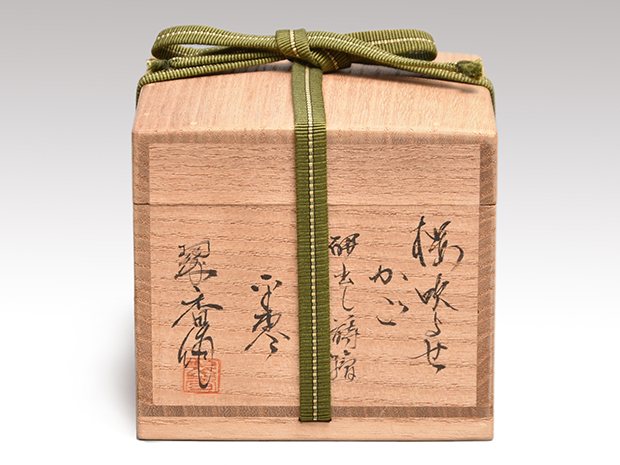 吹よせ
かご
研出し蒔絵
平棗
翠香作